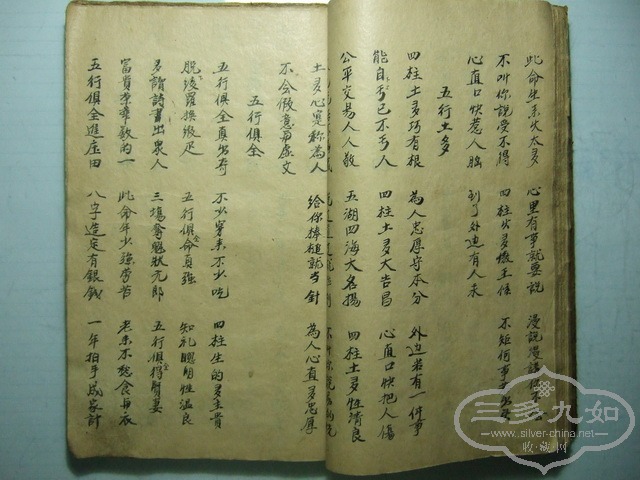 此命生来火太多 心里有事就要说 漫说漫
不叫你说受不得 四柱火多 不知何事
心直口快惹人恼 到了外边有人来
五行土多 为人忠厚守本分 外边若有一件事
四柱土多巧有根 四柱土多大吉昌 心直口快把人伤
能自亏己不亏人 五湖四海大名扬 四柱土多性情良
公平交易人人敬
土多心宽称为人 给你棒槌就当针 为人心直多忠厚
不会假意与虚文
五行俱全
五行俱全真出奇 不少穿来不少吃 四柱生的多主贵
脱绫罗换缎疋 五行俱全命真强 知礼聪明性温良
多读诗书出众人 三场夺魁状元郎 五行俱全得贤妻
富贵荣华数的一 此命年少强劳苦 老来不愁食与衣
五行俱全进庄田 八字造定有银钱 一年拍手成家计
三多九如
www.silver-china.net
收藏网